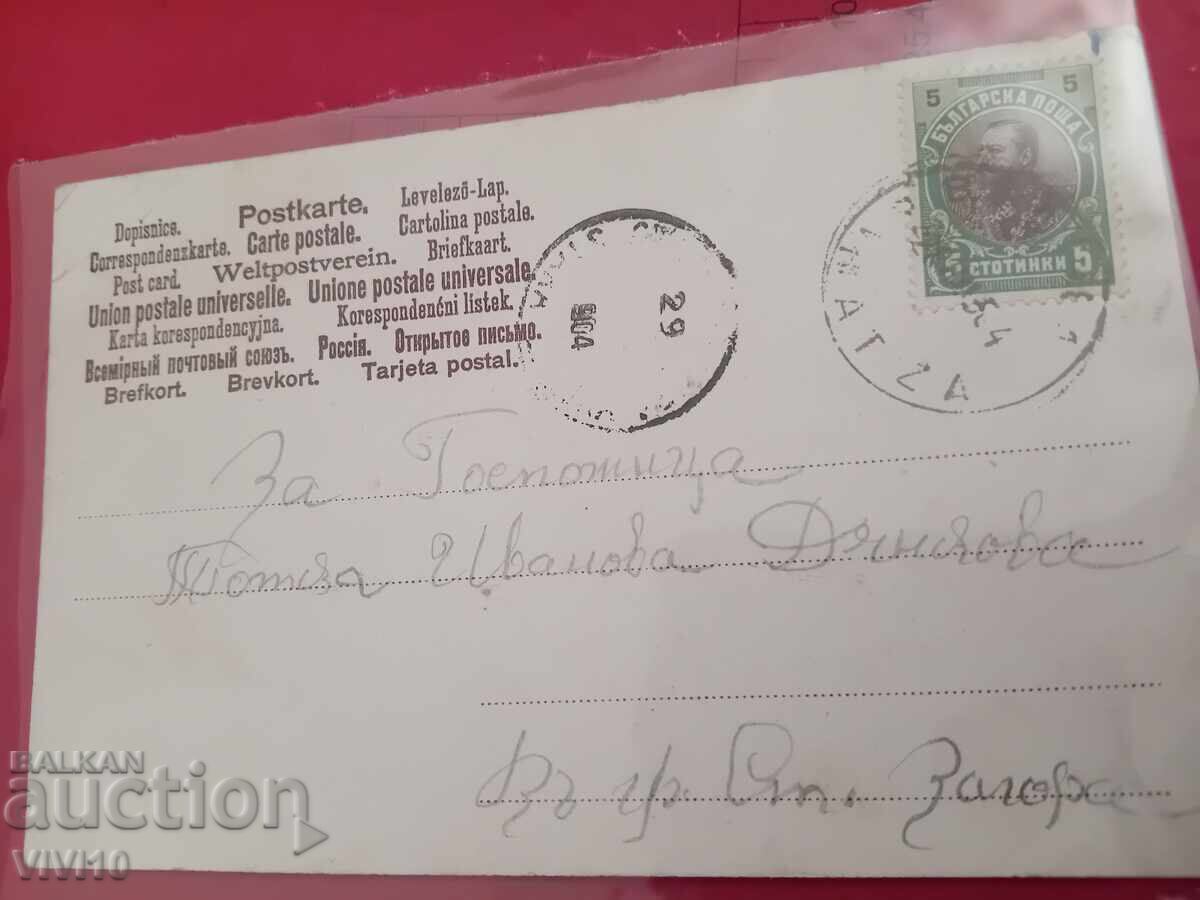 Dopisnice. Postkarte. Levelező-Lap.
Correspondenzkarte. Carte postale. Cartolina postale.
Post card. Weltpostverein. Briefkaart.
Union postale universelle. Unione postale universale.
Karta korespondencyjna. Korespondenčni listek.
Всемірный почтовый союзъ. Россія. Открытое письмо.
Brefkort. Brevkort. Tarjeta postal.
5 5
БЪЛГАРСКА ПОЩА
5 СТОТИНКИ 5
29
904
За Госпожица
Иванова
Въ гр. Ст. Загора
BALKAN
auction
VIVI10